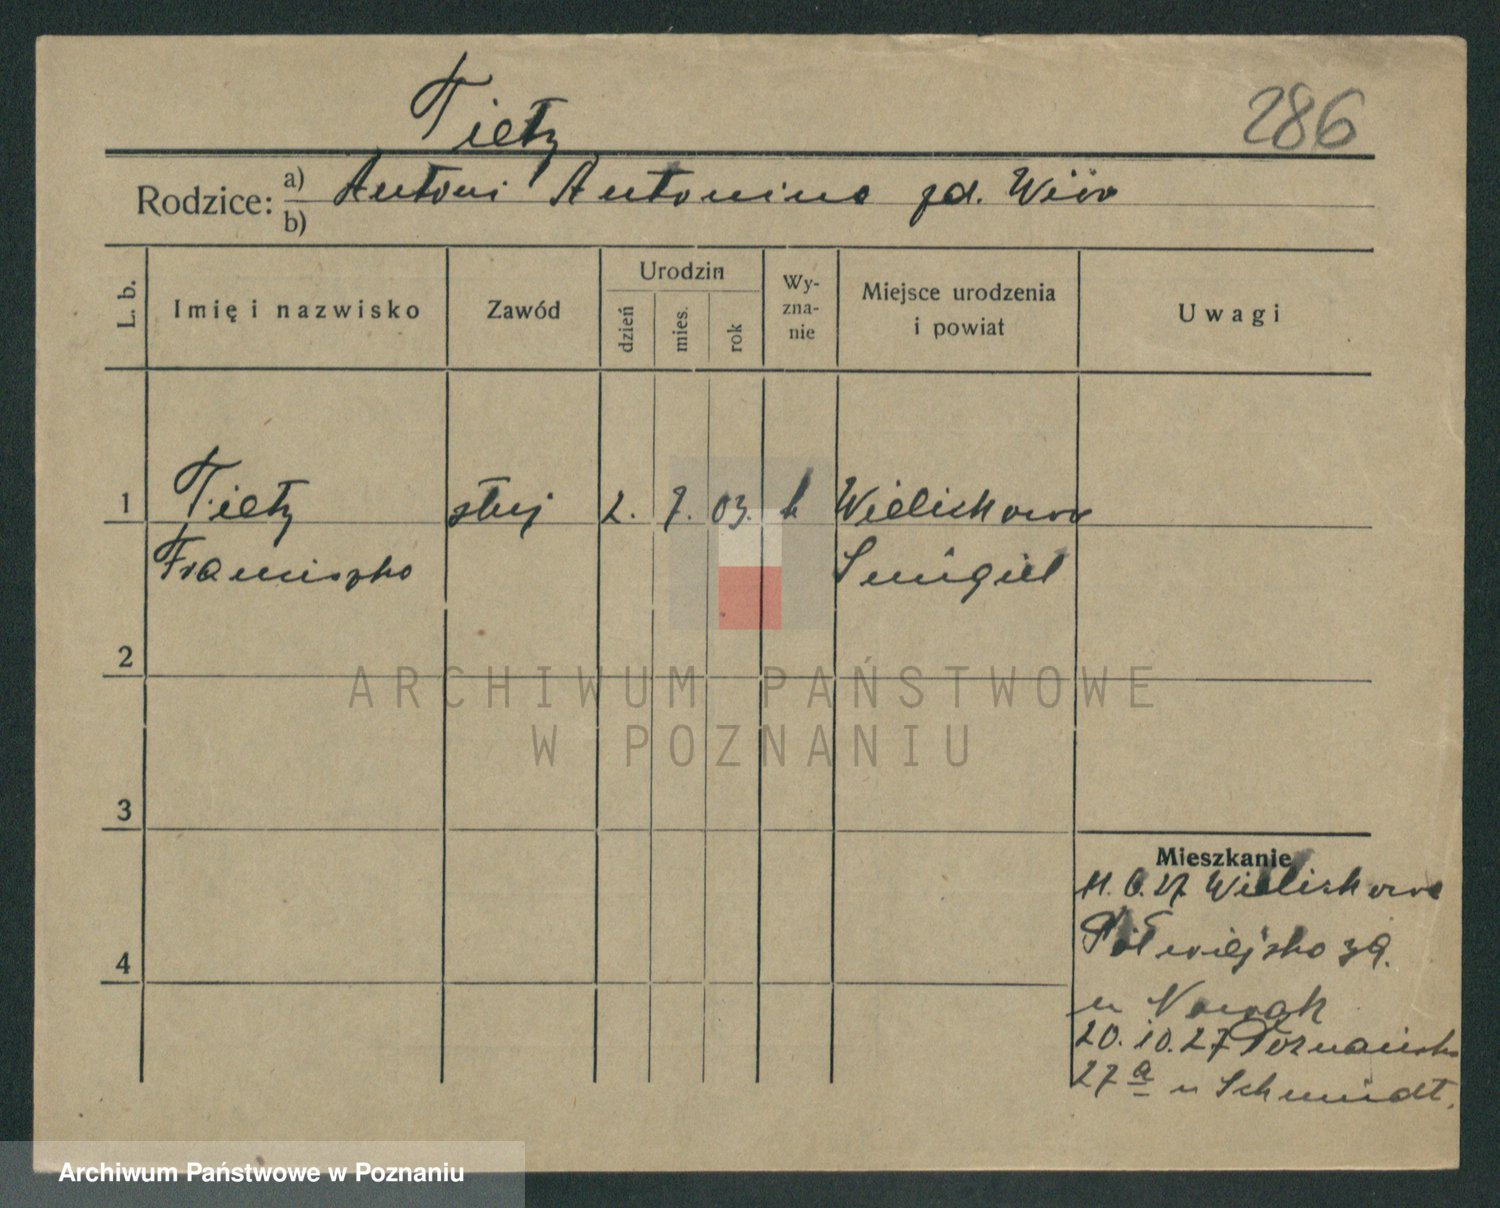 Tietz
286
Rodzice: a) Antoni Antonina zd. Wiór
b)
L. b.
Imię i nazwisko
Zawód
Urodzin
dzień
mies.
rok
Wy-
zna-
nie
Miejsce urodzenia
i powiat
Uwagi
1 Tietz służ 2. 7. 03. k Wielichowo
Franciszka Śmigiel
2
ARCHIWUM PAŃSTWOWE
W POZNANIU
3
Mieszkanie
11. 6. 27. Wielichowo
Półwiejska 39.
4
u Nowak
20. 10. 27 Poznańska
27a u Schmidt.
Archiwum Państwowe w Poznaniu